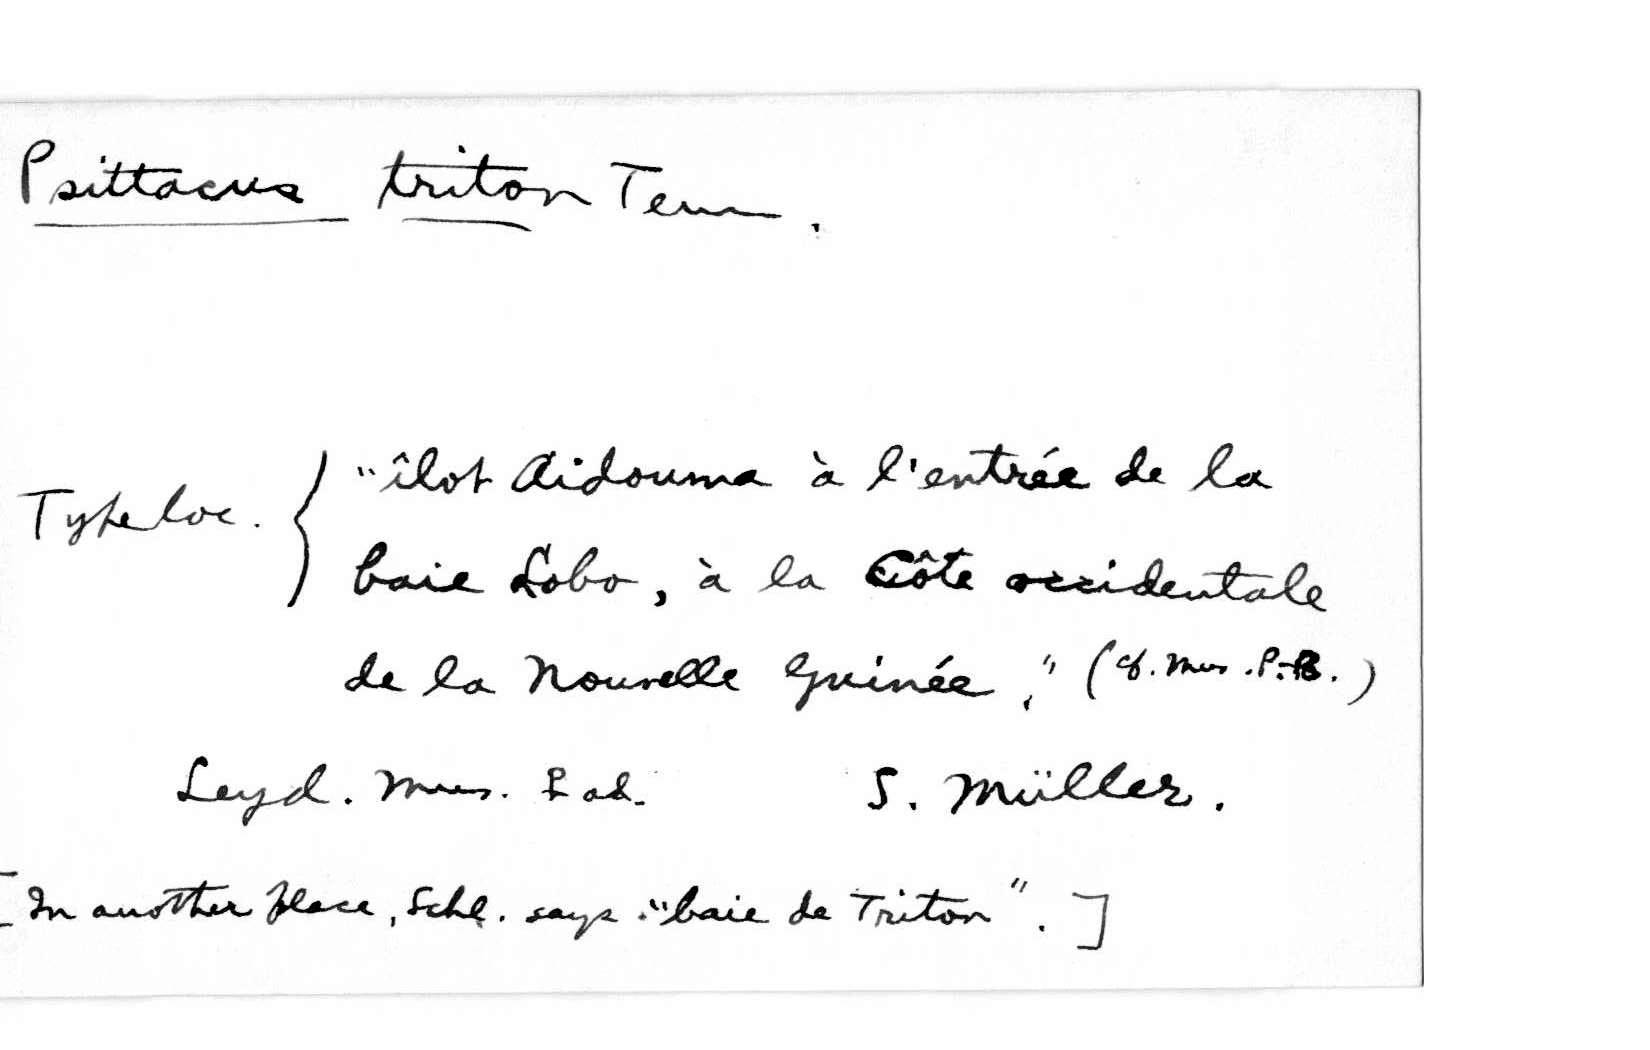 Psittacus triton Tem.
Type loc. { "îlot Aidouma à l'entrée de la
baie Lobo, à la Côte occidentale
de la Nouvelle Guinée," (cf. Mus. P.-B.)
Leyd. Mus. ad. S. Müller.
[In another place, Schl. says "baie de Triton".]